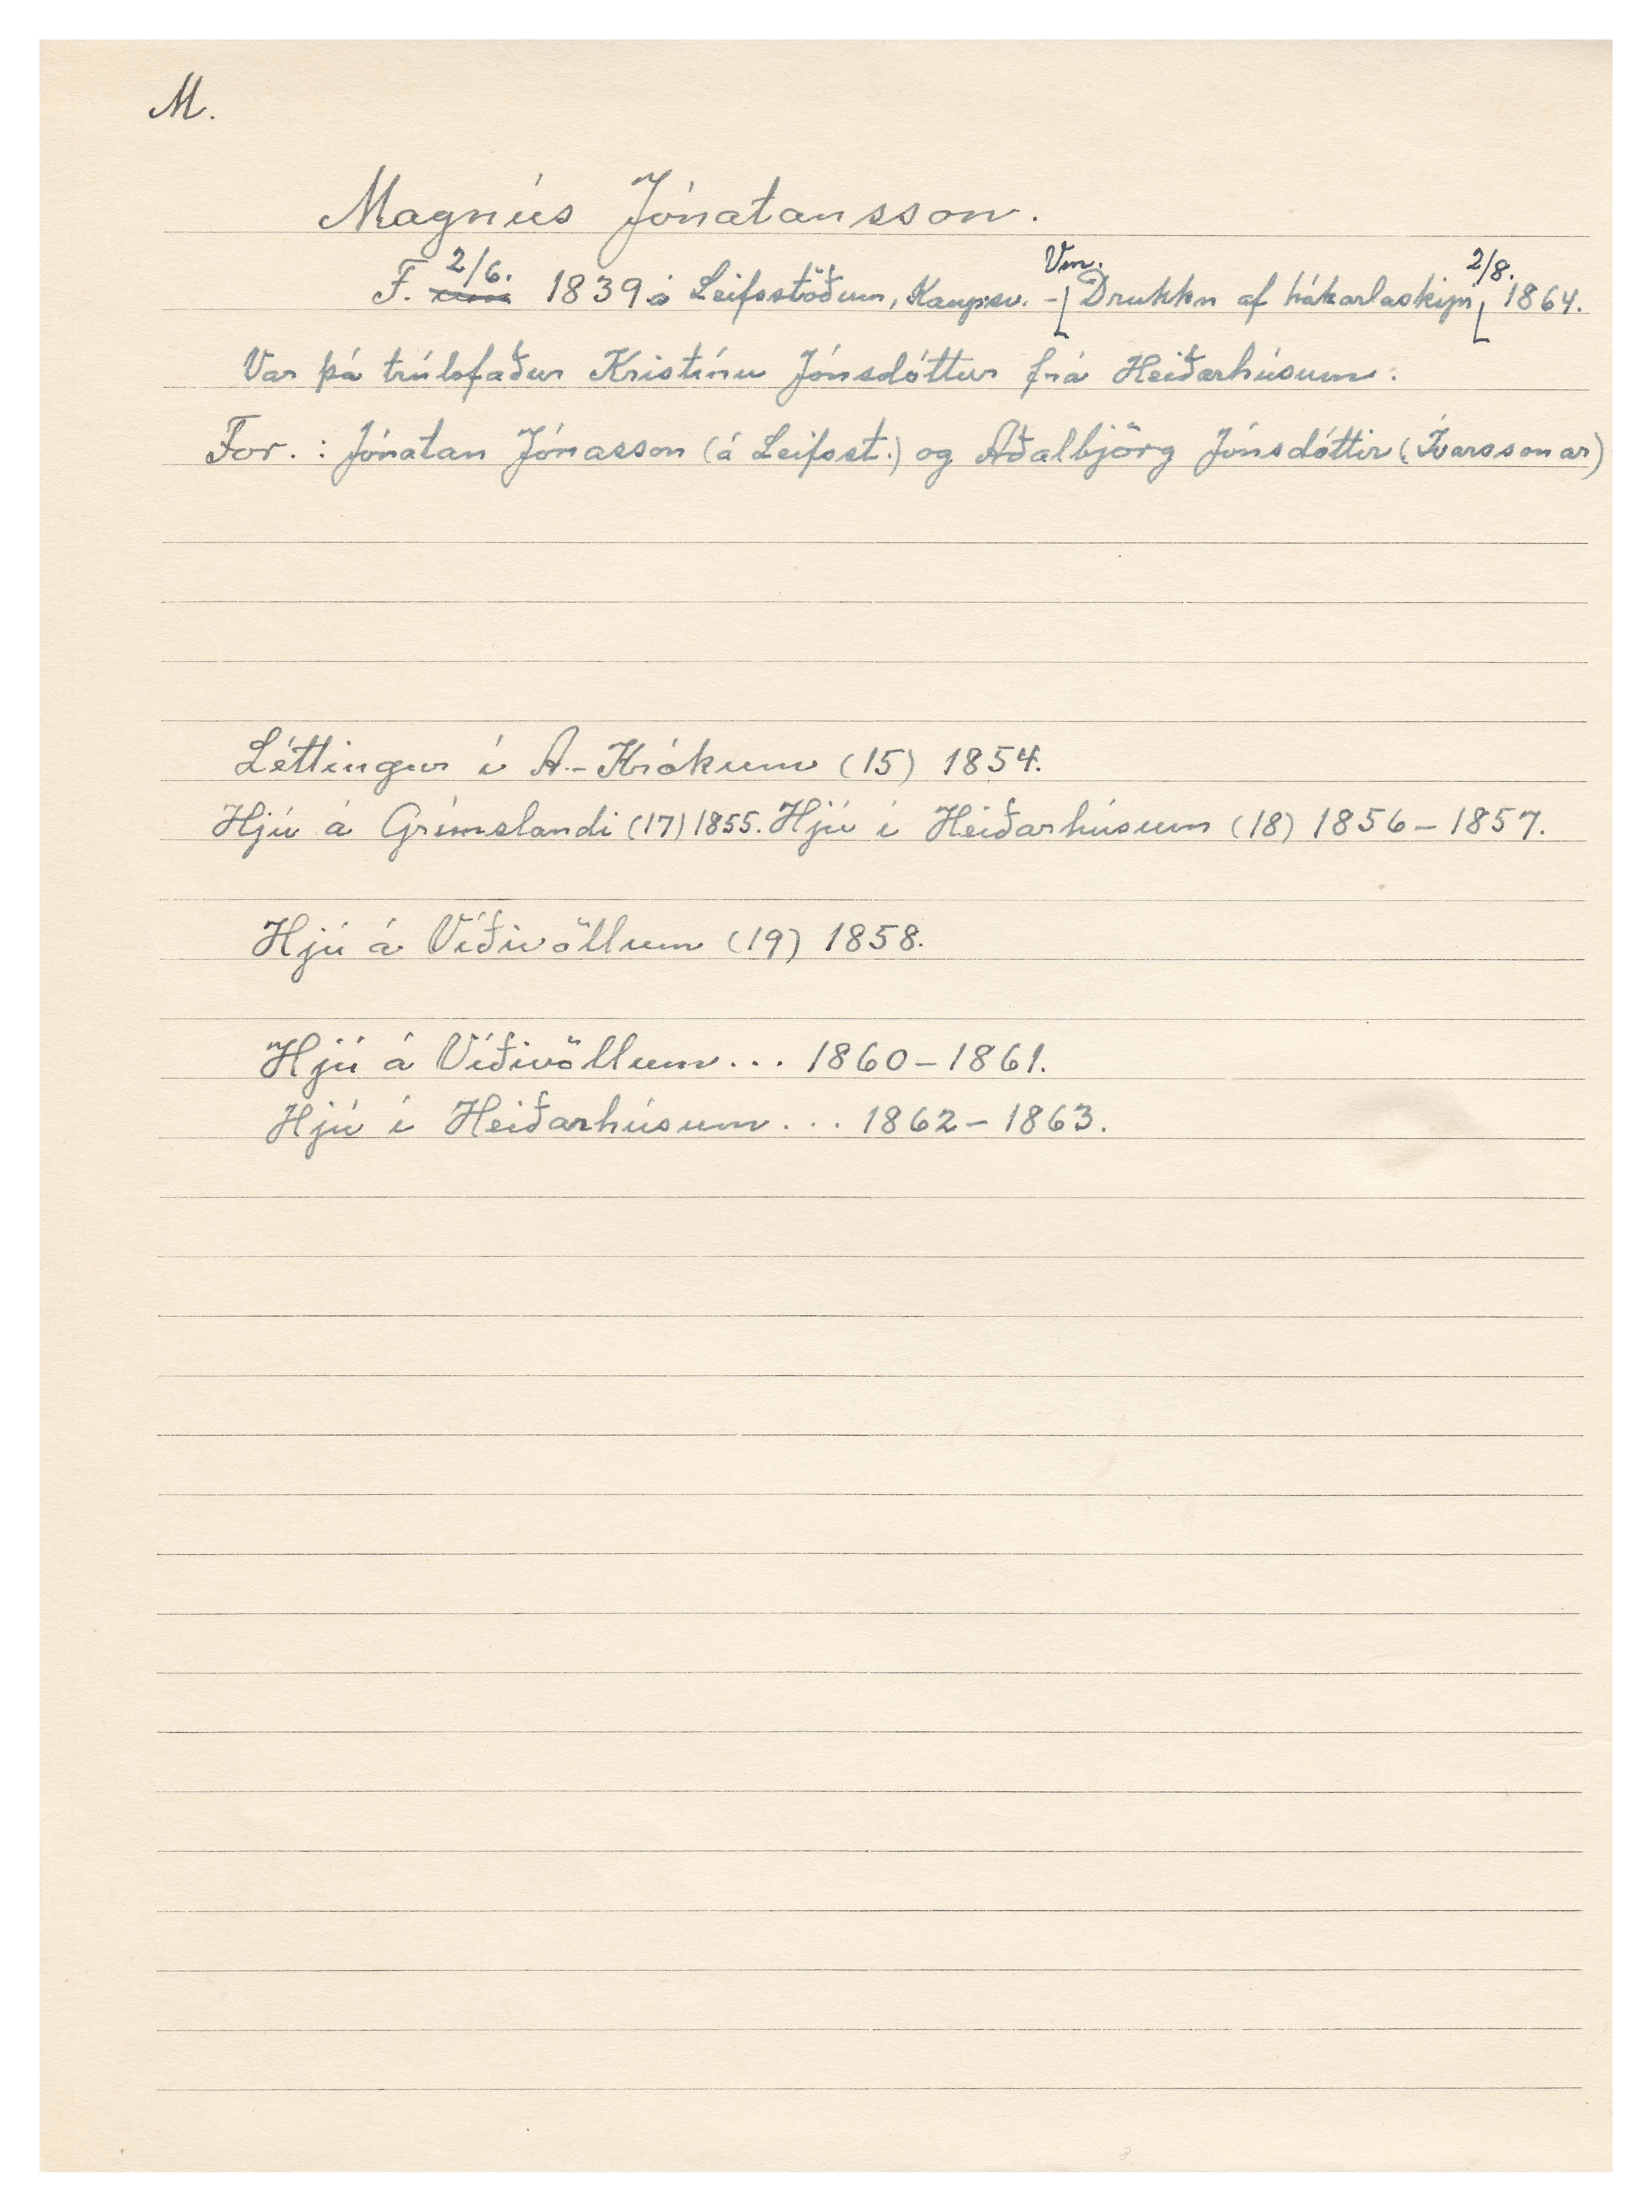 M.
Magnús Jónatansson.
F. 2/6. 1839 á Leifsstöðum, Kaupsv. - Vm. Drukkn af hákarlaskipi 2/8. 1864.
Var þá trúlofaður Kristínu Jónsdóttur frá Heiðarhúsum.
For.: Jónatan Jónasson (á Leifsst.) og Aðalbjörg Jónsdóttir (Ívarssonar)
Léttingur í A.-Krókum (15) 1854.
Hjú á Grímslandi (17) 1855. Hjú í Heiðarhúsum (18) 1856-1857.
Hjú á Víðivöllum (19) 1858.
Hjú á Víðivöllum... 1860-1861.
Hjú í Heiðarhúsum... 1862-1863.